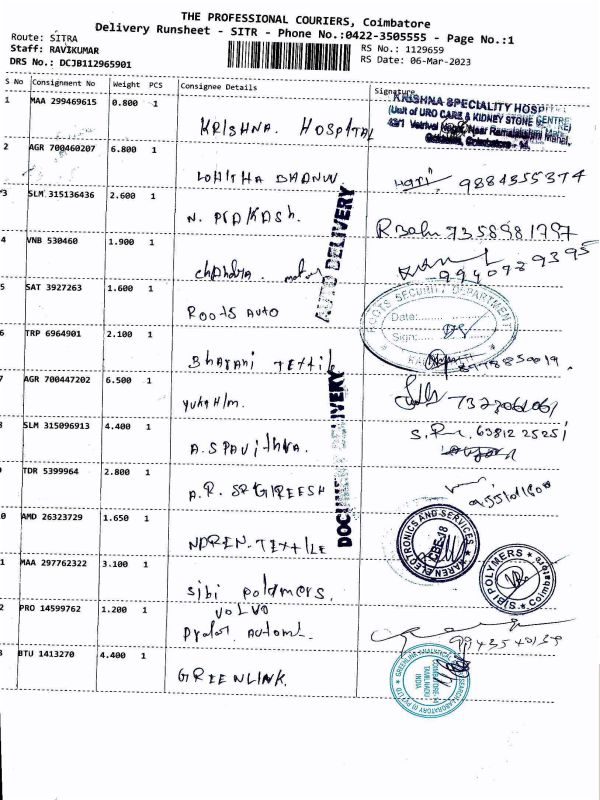 THE PROFESSIONAL COURIERS, Coimbatore
Delivery Runsheet - SITR - Phone No.:0422-3505555 - Page No.:1
Route: SITRA
Staff: RAVIKUMAR
DRS No.: DCJB112965901
RS No.: 1129659
RS Date: 06-Mar-2023
S No Consignment No Weight PCS Consignee Details Signature
1 MAA 299469615 0.800 1 KRISHNA. HOSPITAL
KRISHNA SPECIALITY HOSPITAL
(Unit of URO CARE & KIDNEY STONE CENTRE)
2 AGR 700460207 6.800 1 LOHITHA Hari 9884355374
3 SLM 315136436 2.600 1 N. PRAKASh. 7358981797
4 VNB 530460 1.900 1 9940789395
AUTO DELIVERY
5 SAT 3927263 1.600 1 ROOTS AUTO
ROOTS SECURITY DEPARTMENT
Date:
Sign:
6 TRP 6964901 2.100 1 Bharani TEXTile
7 AGR 700447202 6.500 1
8 SLM 315096913 4.400 1 A.S PAVithra. 63812 25251
DOCUMENT DELIVERY
9 TDR 5399964 2.800 1 A.R. SRGIREESH
0 AMD 26323729 1.650 1 NAREN. TEXTILE
KAREN ELECTRONICS AND SERVICES
CBE-18
1 MAA 297762322 3.100 1 sibi polamers.
SIBI POLYMERS
Coimbatore
2 PRO 14599762 1.200 1 VOLVO
Automt. 9943540139
3 BTU 1413270 4.400 1 GREENLINK.
COIMBATORE
TAMILNADU
INDIA